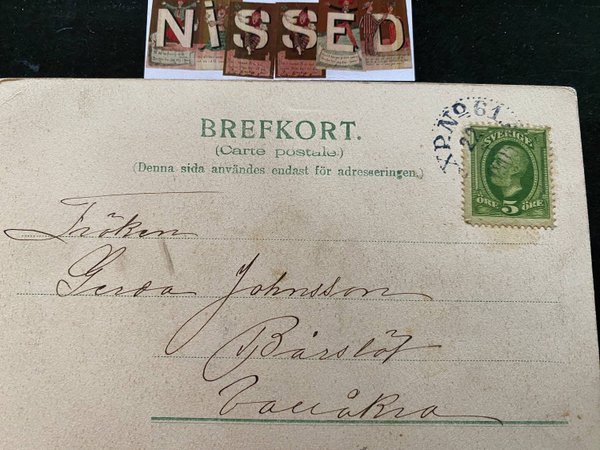 NISSED
BREFKORT.
(Carte postale.)
(Denna sida användes endast för adresseringen.)
XP.No 61
22
SVERIGE
ÖRE 5 ÖRE
Fröken
Gerda Johnsson
Bårslöf
Vallåkra